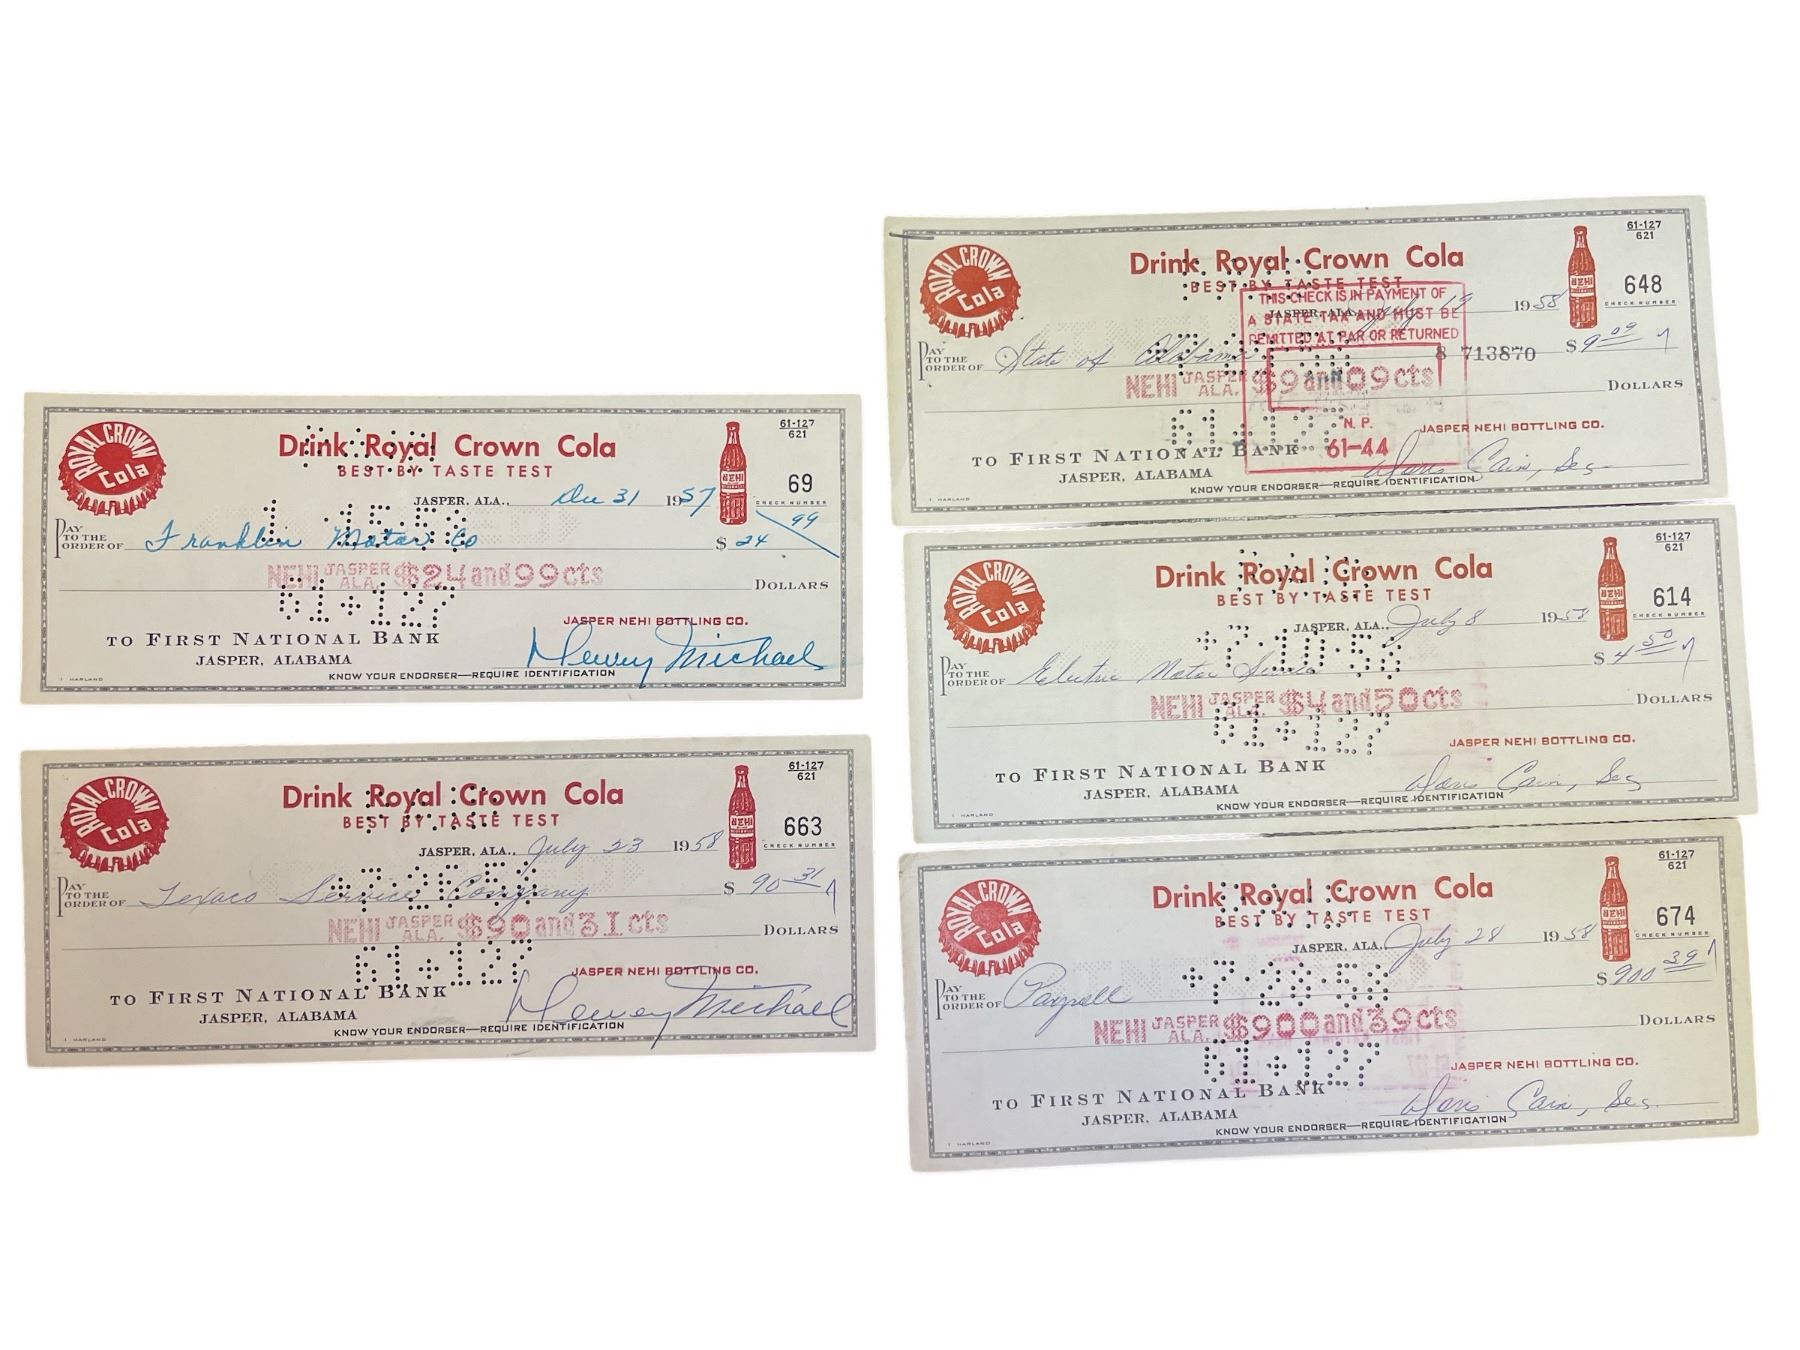 ROYAL CROWN
Cola
Drink Royal Crown Cola
BEST BY TASTE TEST
61-127
621
NEHI
69
CHECK NUMBER
JASPER, ALA., Dec 31 1957
PAY
TO THE
ORDER OF Franklin Motor Co $ 24 99
1·15·58
NEHI JASPER ALA. $24 and 99cts
DOLLARS
61+127
JASPER NEHI BOTTLING CO.
TO FIRST NATIONAL BANK
JASPER, ALABAMA
Dewey Michael
KNOW YOUR ENDORSER—REQUIRE IDENTIFICATION
HARLAND
ROYAL CROWN
Cola
Drink Royal Crown Cola
BEST BY TASTE TEST
61-127
621
NEHI
663
CHECK NUMBER
JASPER, ALA., July 23 1958
PAY
TO THE
ORDER OF Texaco Service Company $ 90 31
NEHI JASPER ALA. $90 and 31cts
DOLLARS
61+127
JASPER NEHI BOTTLING CO.
TO FIRST NATIONAL BANK
JASPER, ALABAMA
Dewey Michael
KNOW YOUR ENDORSER—REQUIRE IDENTIFICATION
HARLAND
ROYAL CROWN
Cola
Drink Royal Crown Cola
BEST BY TASTE TEST
61-127
621
NEHI
648
CHECK NUMBER
THIS CHECK IS IN PAYMENT OF
A STATE TAX AND MUST BE
REMITTED AT PAR OR RETURNED
N. P.
61-44
JASPER, ALA., July 19 1958
PAY
TO THE
ORDER OF State of Alabama 8 713870 $ 9 09
NEHI JASPER ALA. $9 and 09cts
DOLLARS
61+127
JASPER NEHI BOTTLING CO.
TO FIRST NATIONAL BANK
JASPER, ALABAMA
Doris Cain, Sec
KNOW YOUR ENDORSER—REQUIRE IDENTIFICATION
HARLAND
ROYAL CROWN
Cola
Drink Royal Crown Cola
BEST BY TASTE TEST
61-127
621
NEHI
614
CHECK NUMBER
JASPER, ALA., July 8 1958
+7·10·58
PAY
TO THE
ORDER OF Electric Motor Service $ 4 50
NEHI JASPER ALA. $4 and 50cts
DOLLARS
61+127
JASPER NEHI BOTTLING CO.
TO FIRST NATIONAL BANK
JASPER, ALABAMA
Doris Cain, Sec
KNOW YOUR ENDORSER—REQUIRE IDENTIFICATION
HARLAND
ROYAL CROWN
Cola
Drink Royal Crown Cola
BEST BY TASTE TEST
61-127
621
NEHI
674
CHECK NUMBER
JASPER, ALA., July 28 1958
+7·28·58
PAY
TO THE
ORDER OF Payroll $ 900 39
NEHI JASPER ALA. $900 and 39cts
DOLLARS
61+127
JASPER NEHI BOTTLING CO.
TO FIRST NATIONAL BANK
JASPER, ALABAMA
Doris Cain, Sec.
KNOW YOUR ENDORSER—REQUIRE IDENTIFICATION
HARLAND